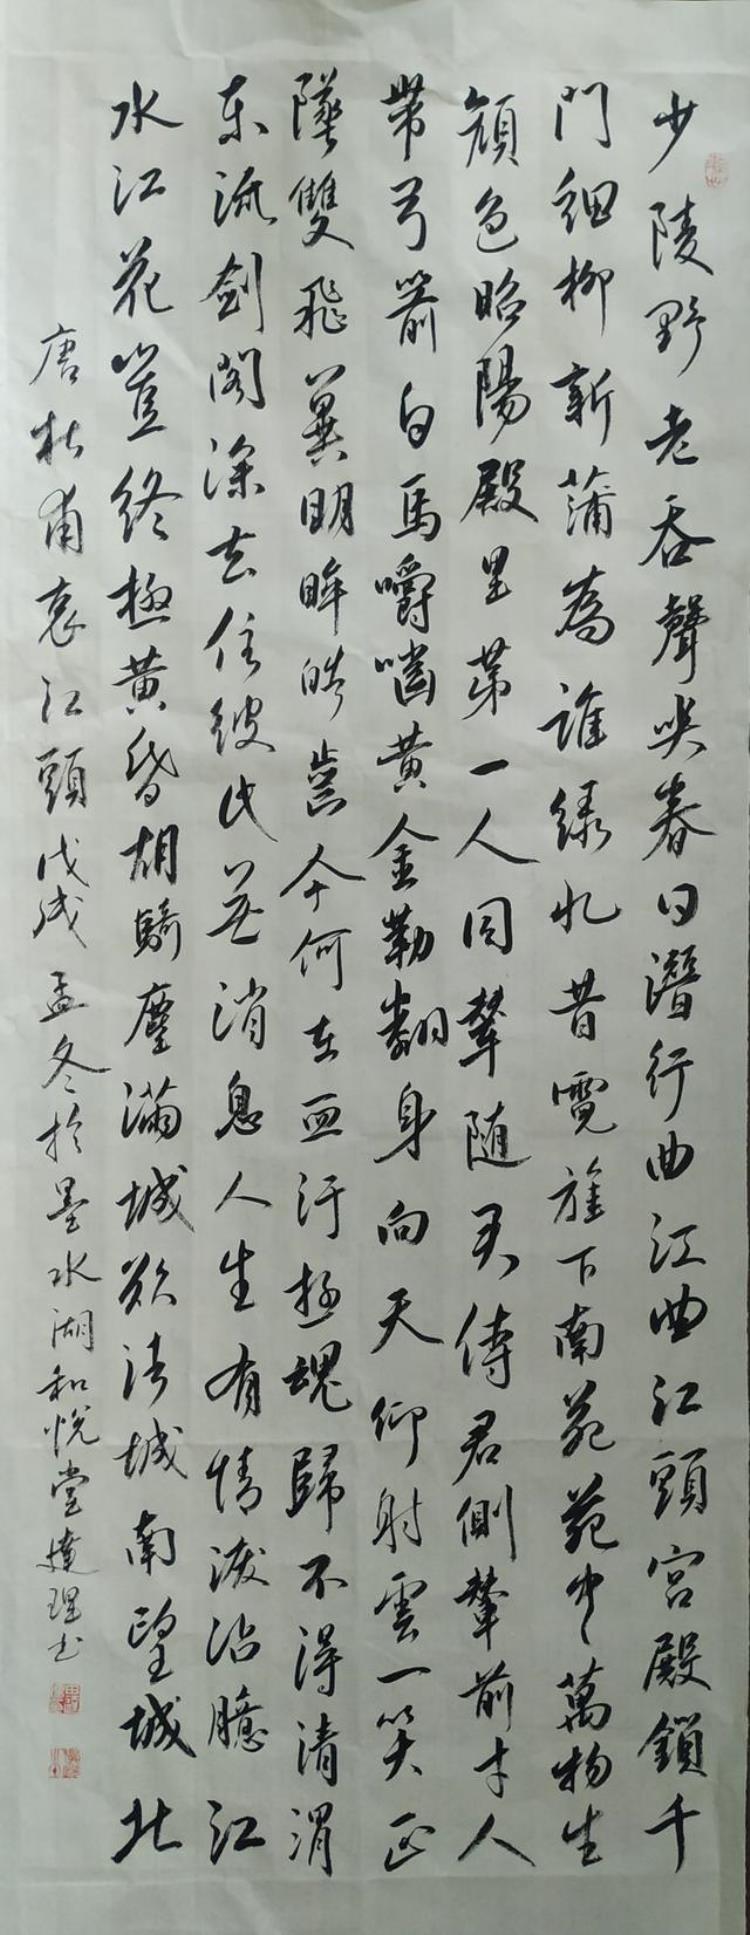 少陵野老吞聲哭春日潛行曲江曲江頭宮殿鎖千
門細柳新蒲為誰綠憶昔霓旌下南苑苑中萬物生
顏色昭陽殿里第一人同輦隨君侍君側輦前才人
帶弓箭白馬嚼嚙黃金勒翻身向天仰射雲一笑正
墜雙飛翼明眸皓齒今何在血汙遊魂歸不得清渭
東流劍閣深去住彼此無消息人生有情淚沾臆江
水江花豈終極黃昏胡騎塵滿城欲往城南望城北
唐杜甫哀江頭戊戌孟冬於墨水湖和悅堂建理书